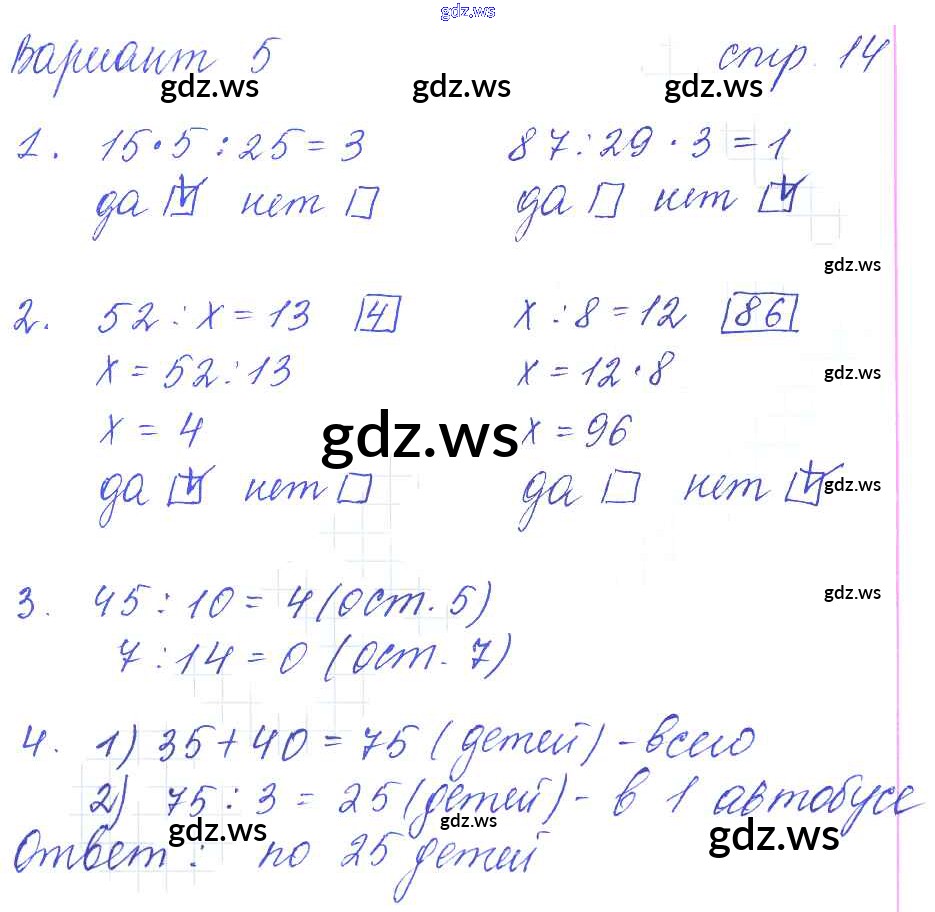 gdz.ws
Вариант 5 стр. 14
gdz.ws gdz.ws gdz.ws
1. 15·5:25=3 87:29·3=1
да ☑ нет ☐ да ☐ нет ☑
gdz.ws
2. 52:x=13 4 x:8=12 86
x=52:13 x=12·8
gdz.ws
x=4 x=96
gdz.ws
да ☑ нет ☐ да ☐ нет ☑
gdz.ws
3. 45:10=4(ост. 5)
gdz.ws
7:14=0 (ост. 7)
4. 1) 35+40=75 (детей) - всего
2) 75:3=25 (детей) - в 1 автобусе
gdz.ws gdz.ws gdz.ws
Ответ: по 25 детей